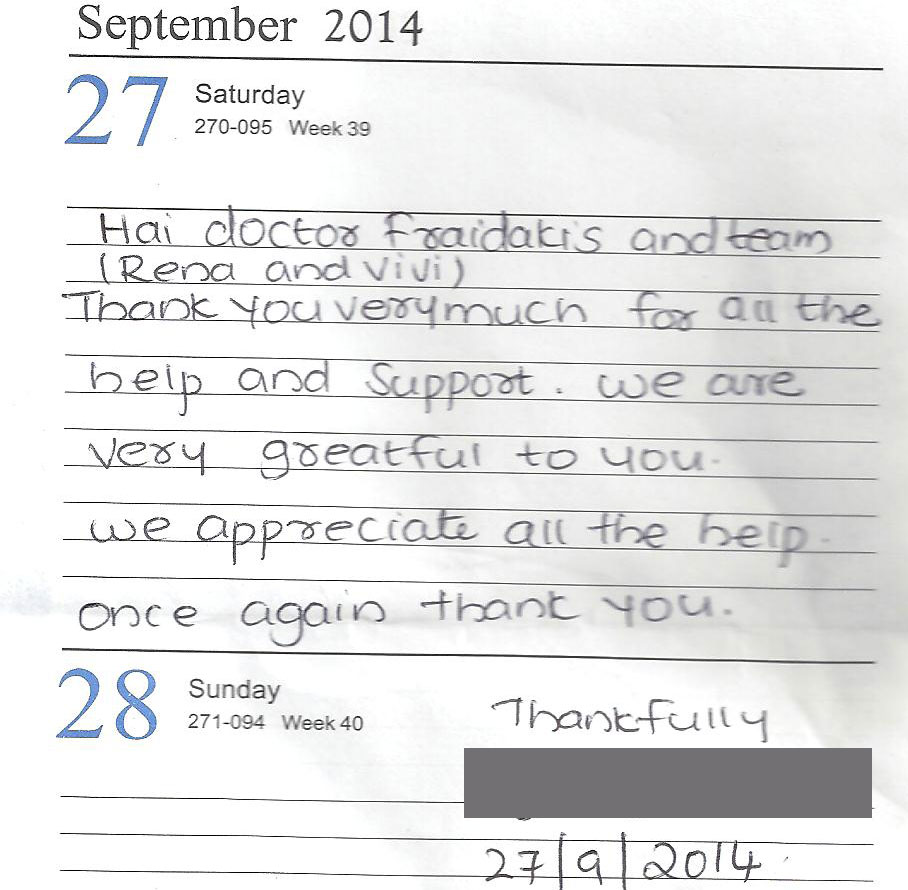 September 2014
27 Saturday
270-095 Week 39
Hai doctor Fraidakis and team
(Rena and vivi)
Thank you very much for all the
help and support. we are
very greatful to you.
we appreciate all the help.
once again thank you.
28 Sunday
271-094 Week 40
Thankfully
27/9/2014